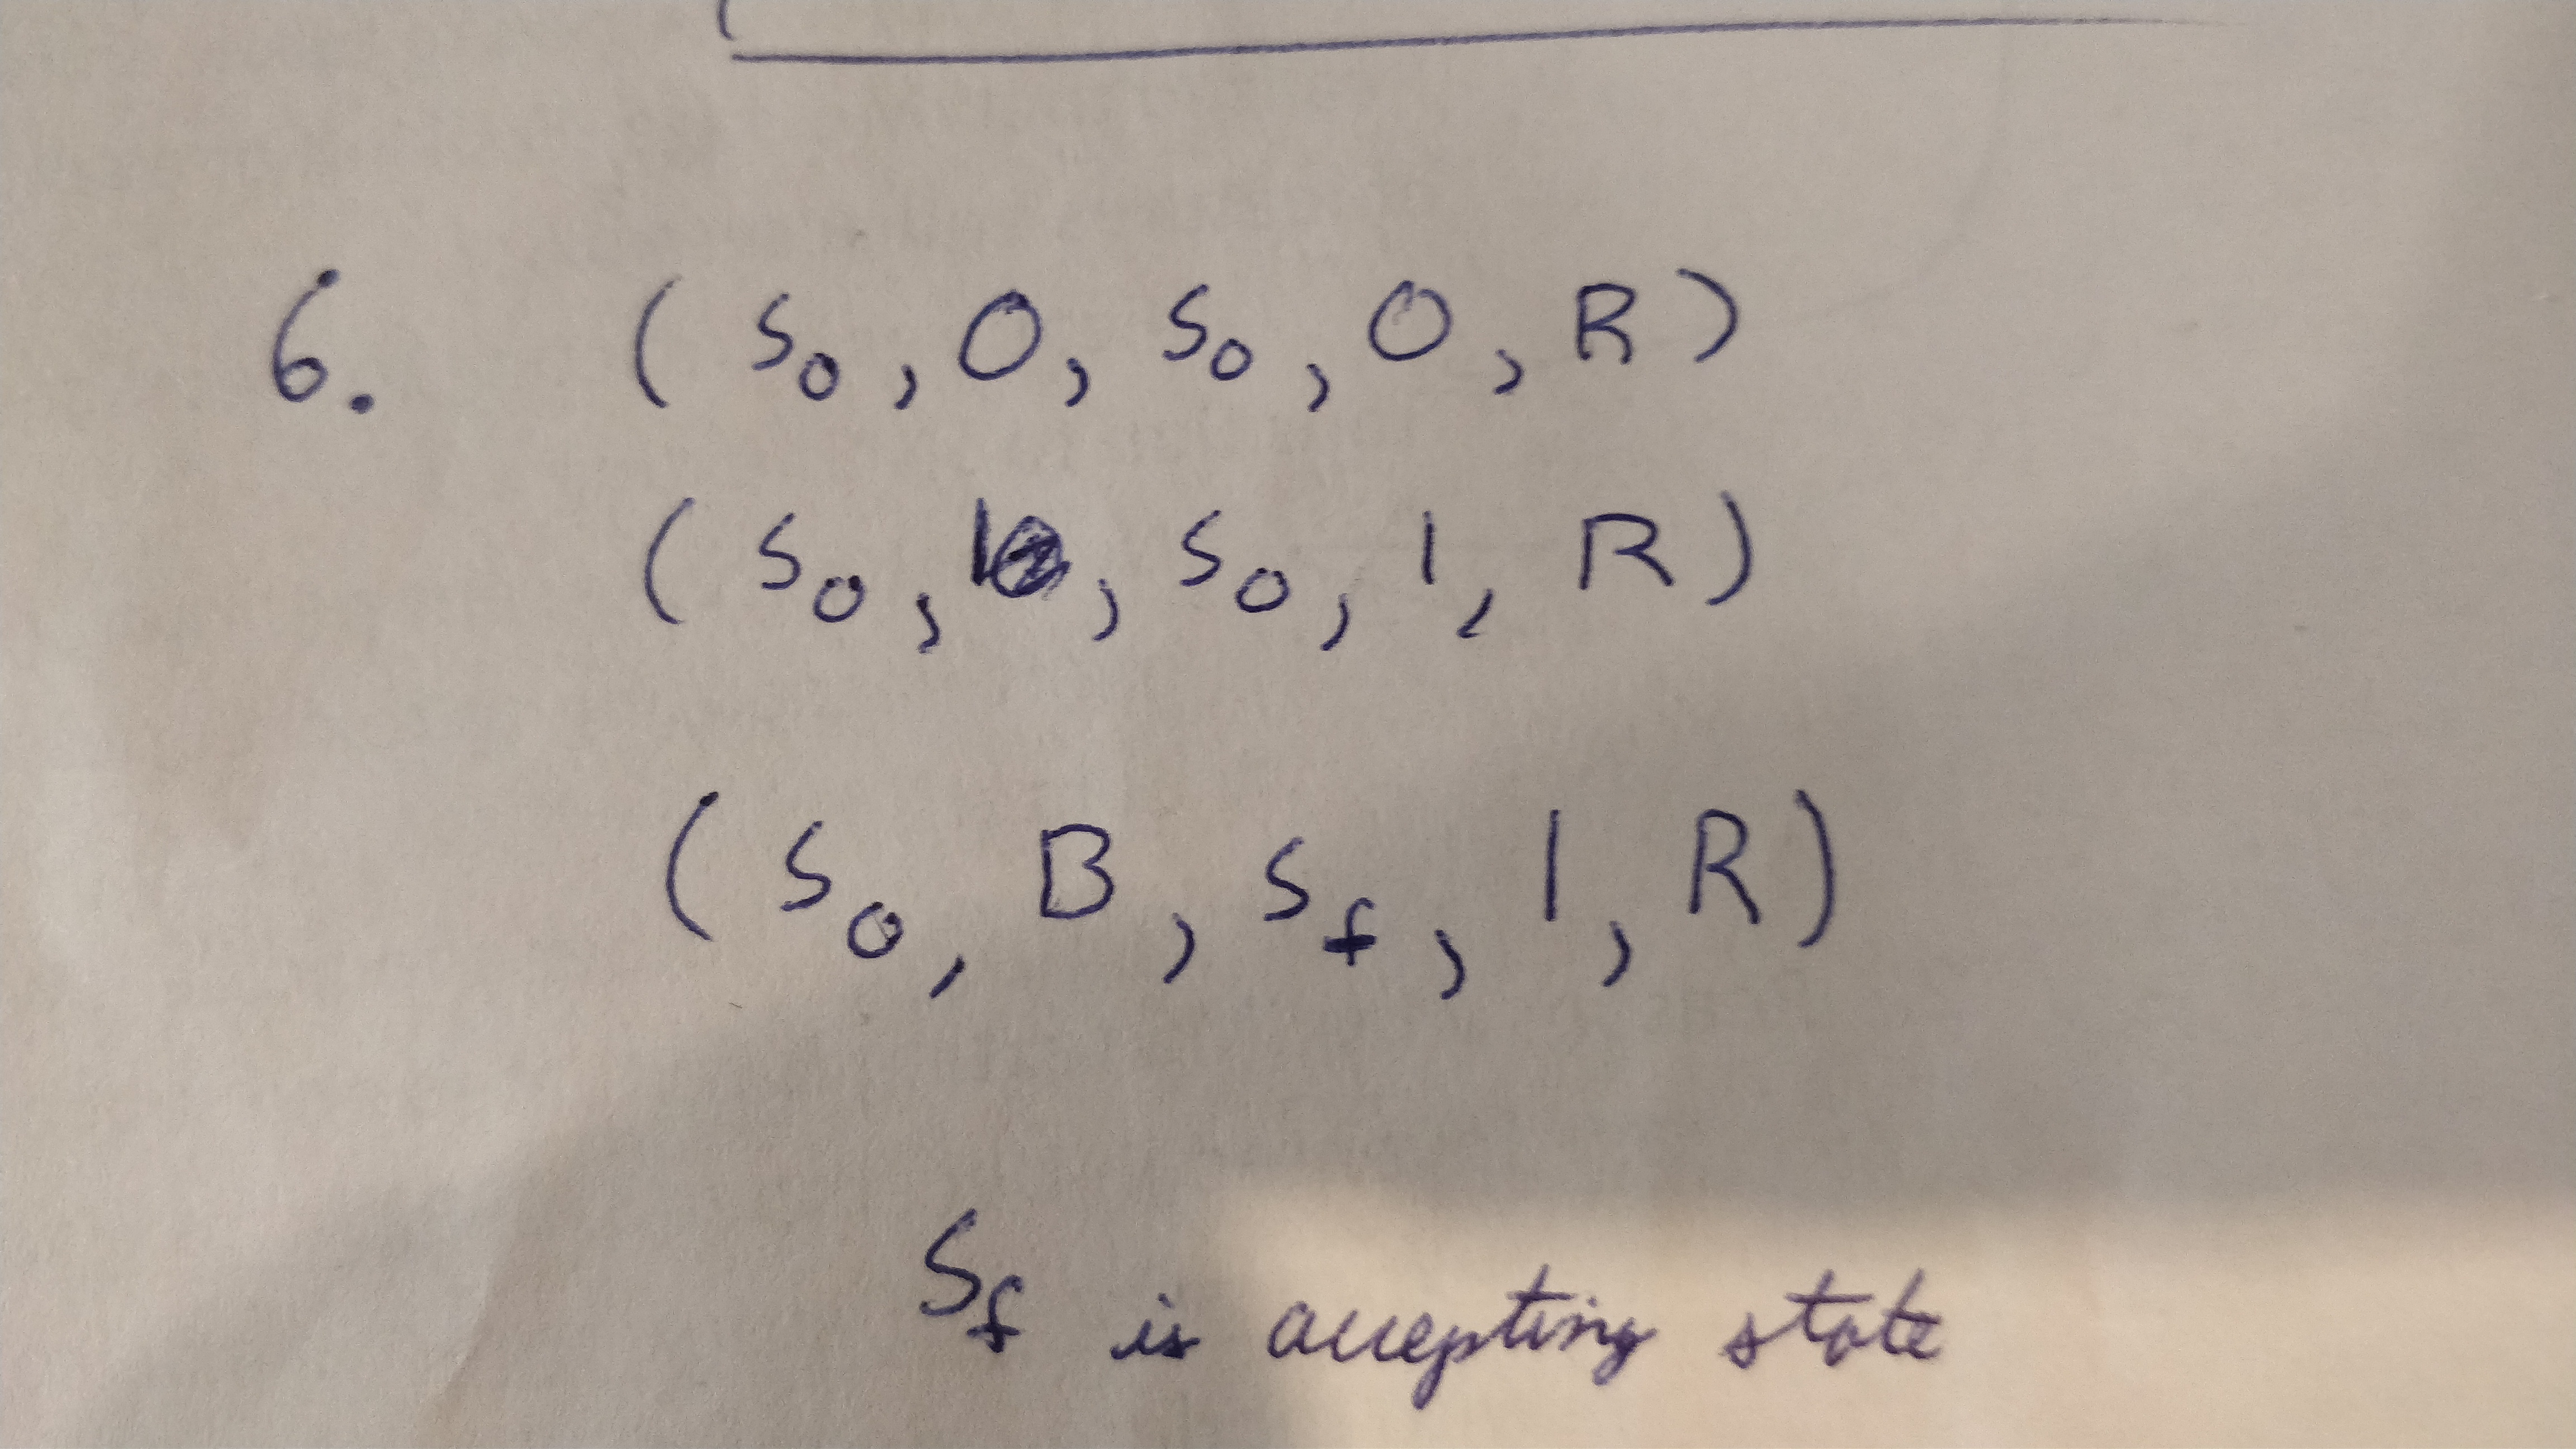 6. (S₀, 0, S₀, 0, R)
(S₀, 1, S₀, 1, R)
(S₀, B, S_f, 1, R)
S_f is accepting state